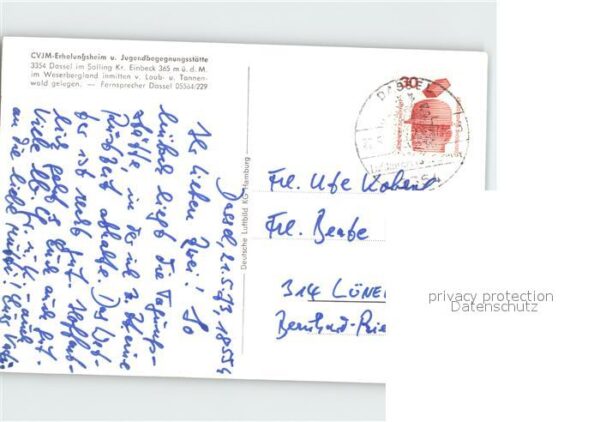 CVJM-Erholungsheim u. Jugendbegegnungsstätte
3354 Dassel im Solling Kr. Einbeck 365 m ü. d. M.
im Weserbergland inmitten v. Laub- u. Tannen-
wald gelegen. — Fernsprecher Dassel 05564/229
Deutsche Luftbild KG Hamburg
30
DASSEL
Dassel, 21.5.73, 18.55h
Ihr lieben zwei! So
liegt die Tagungs-
stätte, in der ich z. Zt. eine
abhalte. Das Wet-
ter ist recht gut. Hoffent-
lich geht's Euch auch gut.
Viele
an die liebe Mutti! Euer Vati
Frl. Ute
Frl. Beate
314 LÜNE
Bernhard-Rie
privacy protection
Datenschutz